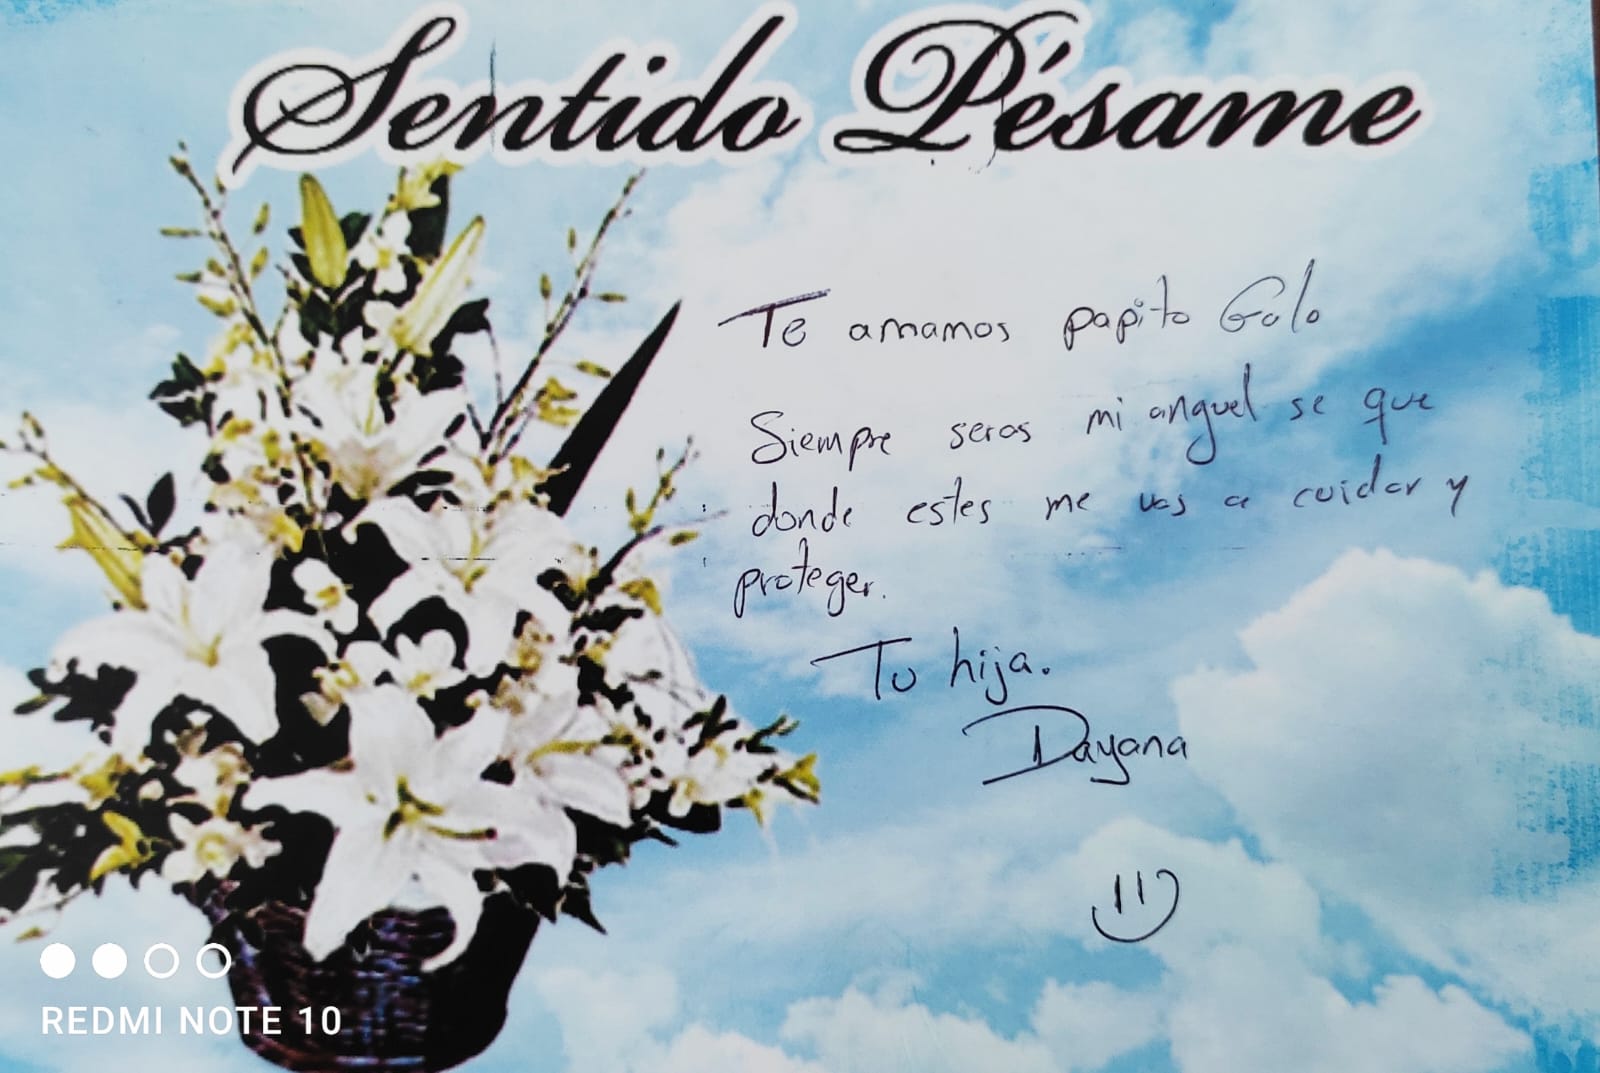 Sentido Pésame
Te amamos papito Golo
Siempre seras mi anguel se que
donde estes me vas a cuidar y
proteger.
Tu hija.
Dayana
REDMI NOTE 10